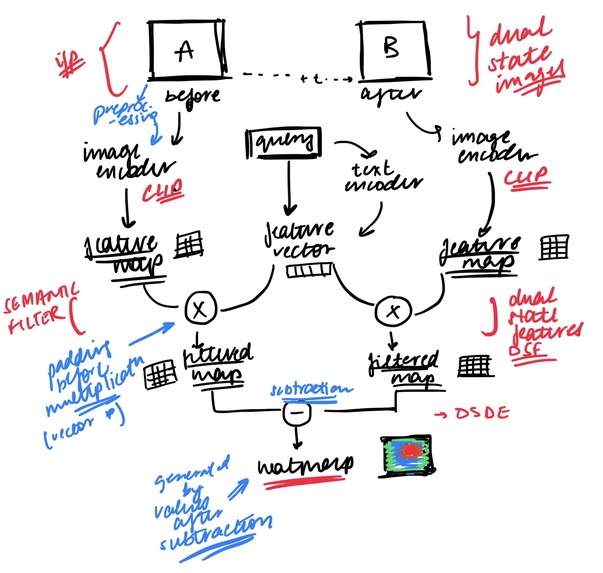 i/p
A
B
dual
state
images
+ t
before
after
preproc-
-essing
query
image
encoder
CLIP
text
encoder
image
encoder
CLIP
feature
map
feature
vector
feature
map
SEMANTIC
FILTER
X
X
dual
state
features
DSF
padding
before
multiplicatn
(vector
filtered
map
filtered
map
subtraction
−
→ DSDE
heatmap
generated
by
values
after
subtraction